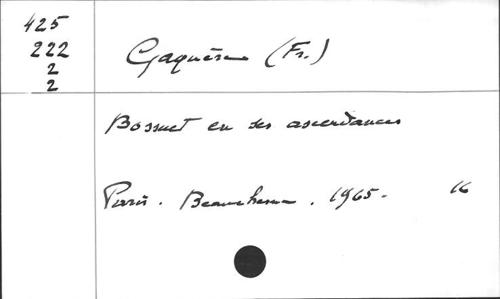 425
222
2
2
Gaquère (Fr.)
Bossuet en ses ascendances
Paris. Beauchesne. 1965. 16